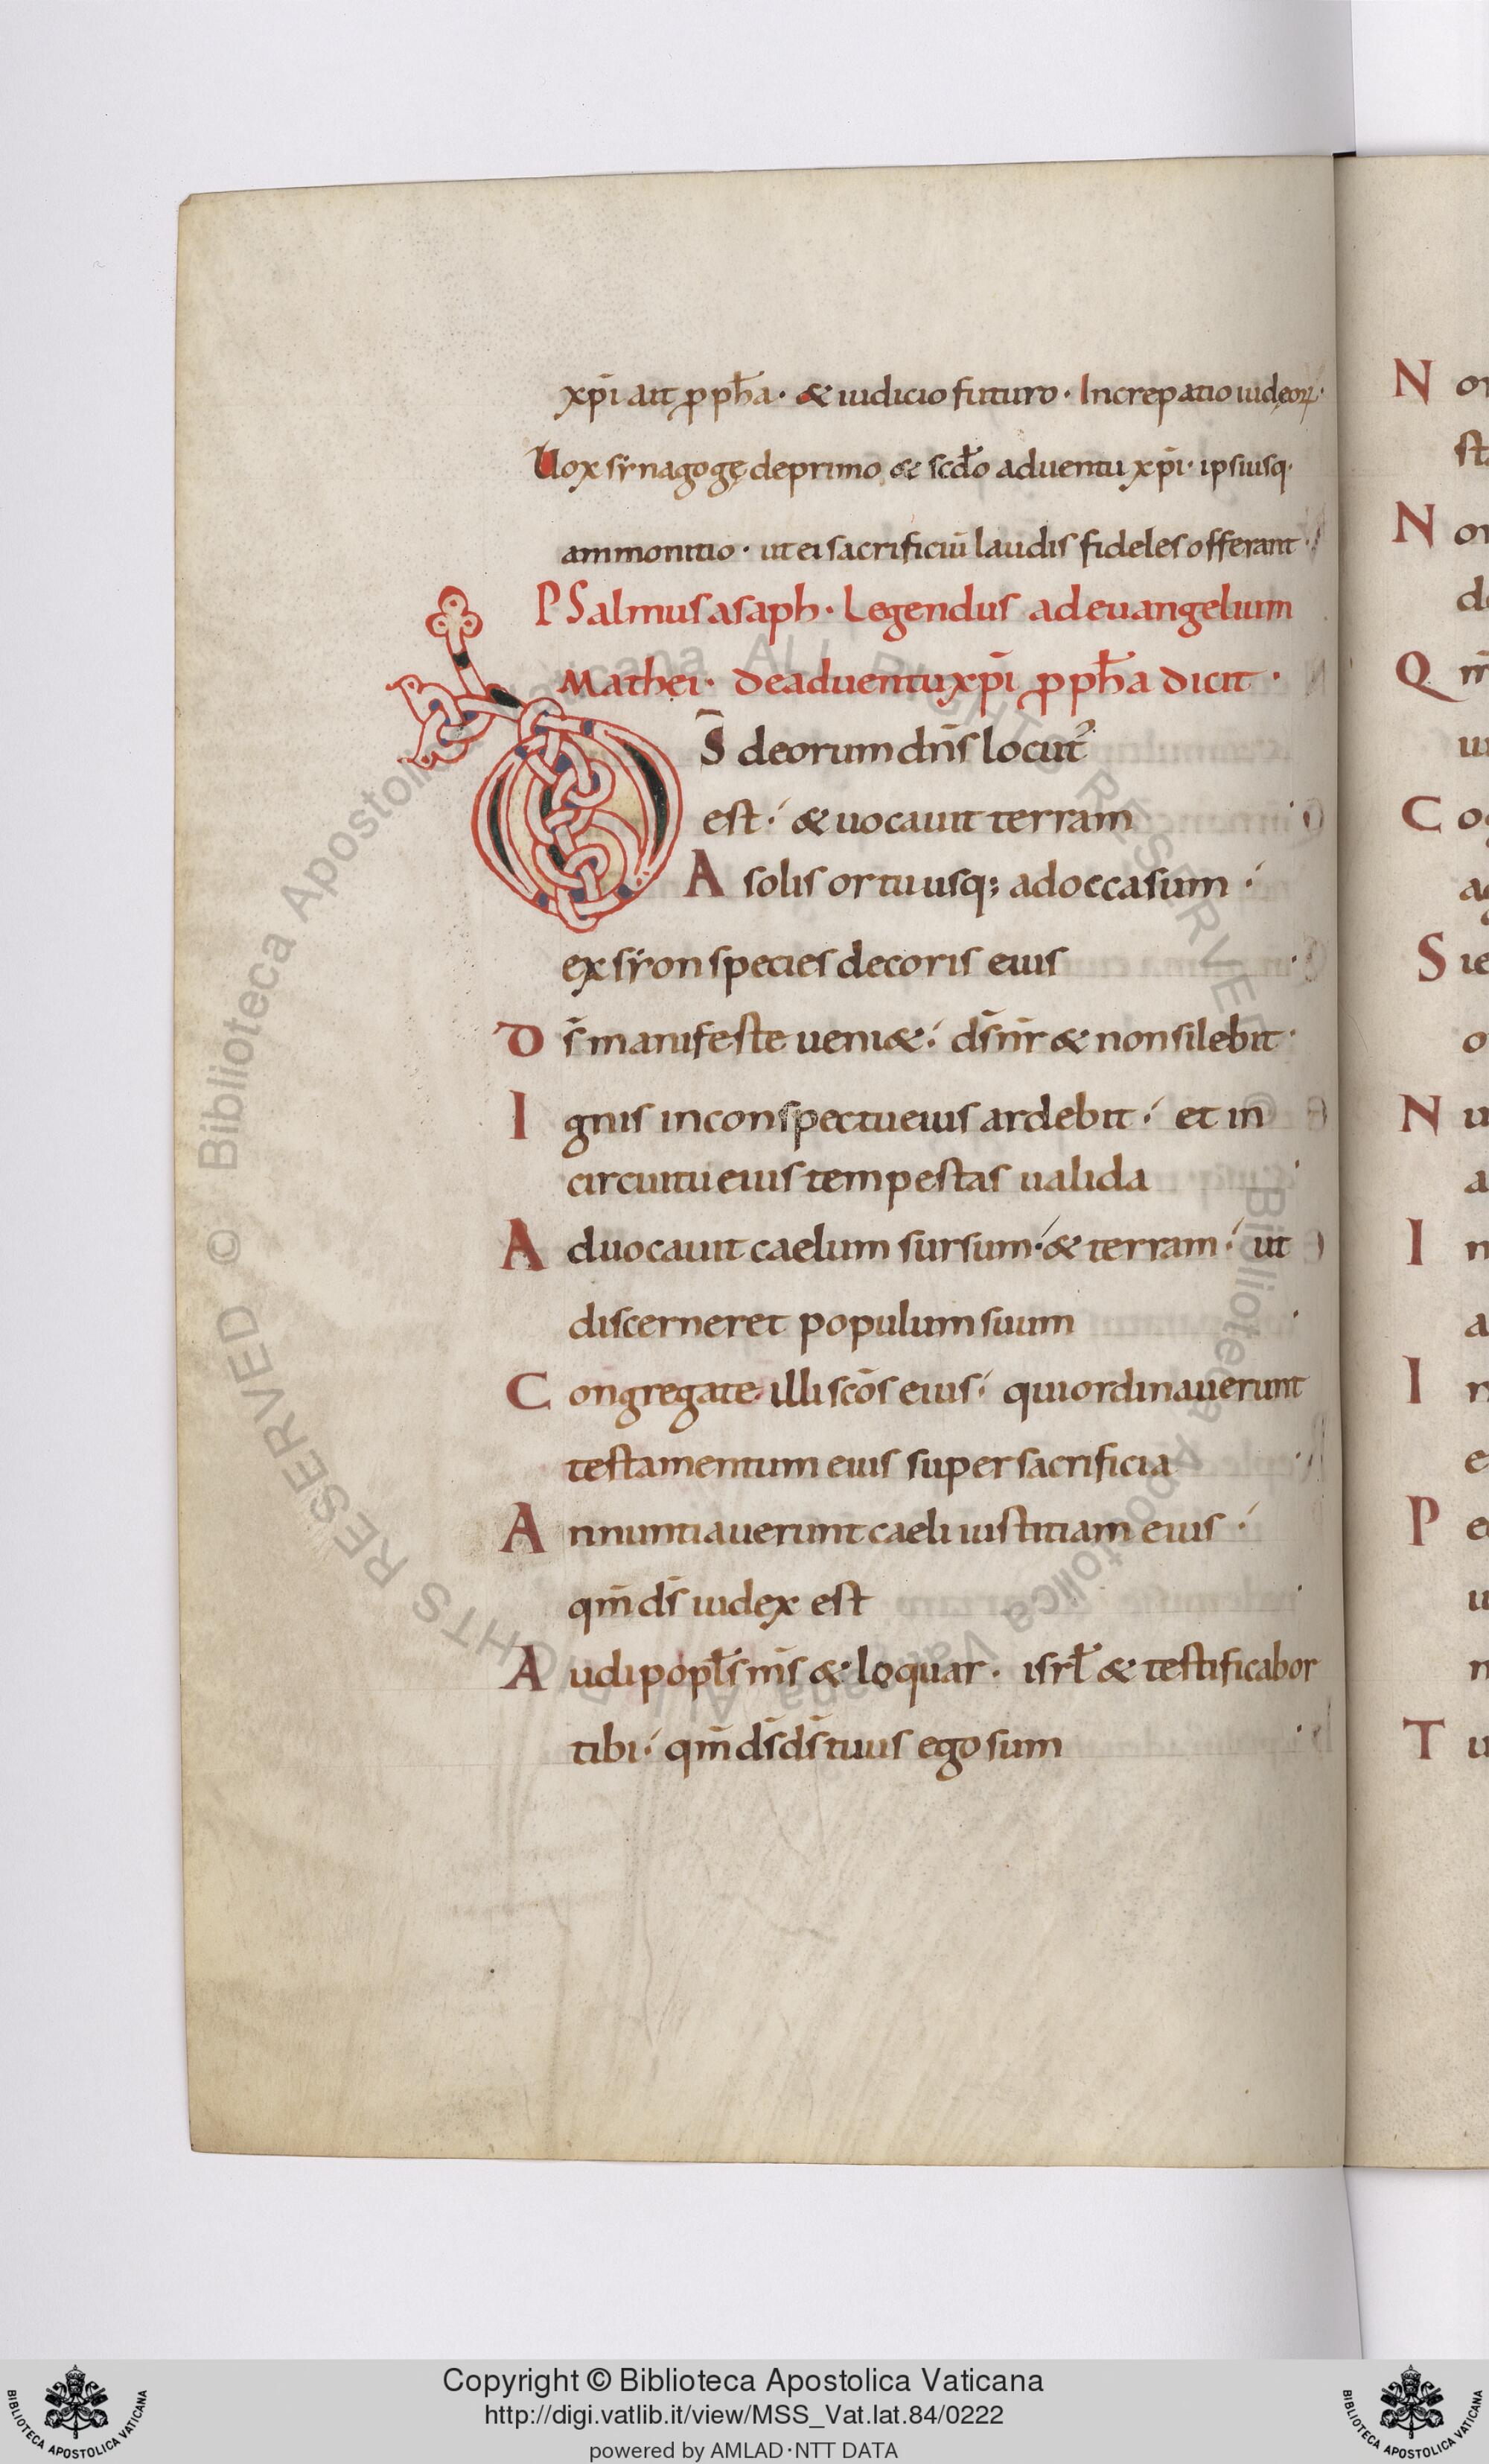 xp̄i ait ꝓph̄a · & iudicio futuro · Increpatio iudęoꝝ ·
Uox synagogę de primo & scđo aduentu xp̄i · ipsiusq·
ammonitio · ut ei sacrificiū laudis fideles offerant ·
PSalmus asaph · Legendus ad euangelium
Mathei · de aduentu xp̄i ꝓph̄a dicit ·
DS̄ deorum dn̄s locut᾽
est · & uocauit terram
A solis ortu usq; ad occasum ·
ex syon species decoris eius ·
D s̄ manifeste ueni& · ds̄ nr̄ & non silebit ·
I gnis in conspectu eius ardebit · et in
circuitu eius tempestas ualida ·
A duocauit caelum sursum · & terram · ut
discerneret populum suum ·
C ongregate illi scōs eius · qui ordinauerunt
testamentum eius super sacrificia ·
A nnuntiauerunt caeli iustitiam eius ·
qm̄ ds̄ iudex est ·
A udi popl̄s ms̄ & loquar · isrł & testificabor
tibi · qm̄ ds̄ ds̄ tuus ego sum ·
N
N
Q
C
S
N
I
I
P
T
Copyright © Biblioteca Apostolica Vaticana
http://digi.vatlib.it/view/MSS_Vat.lat.84/0222
powered by AMLAD·NTT DATA
BIBLIOTECA APOSTOLICA VATICANA
BIBLIOTECA APOSTOLICA VATICANA
© Biblioteca Apostolica Vaticana ALL RIGHTS RESERVED
© Biblioteca Apostolica Vaticana ALL RIGHTS RESERVED